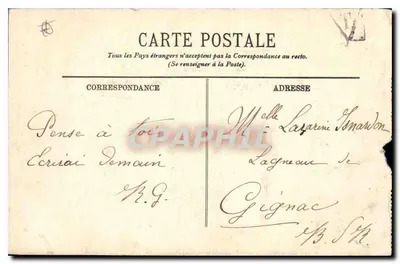 CARTE POSTALE
Tous les Pays étrangers n'acceptent pas la Correspondance au recto.
(Se renseigner à la Poste).
CORRESPONDANCE
ADRESSE
Pense à toi
Ecrirai demain
R. G.
Melle Lazarine Isnardon
Lagneau de
Gignac
B. d R.
CPAPHIL